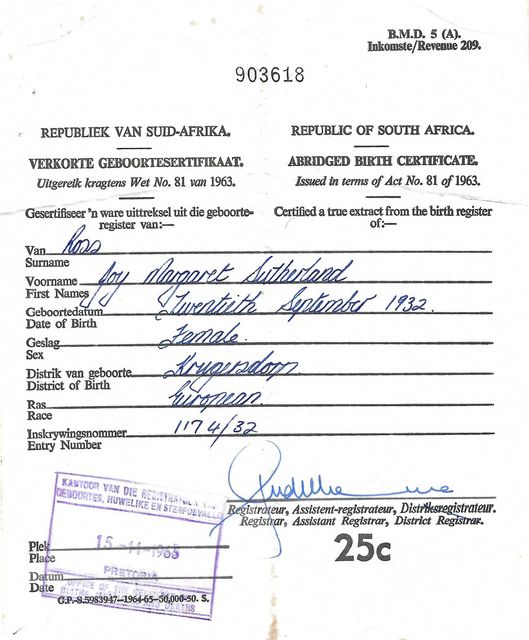 B.M.D. 5 (A).
Inkomste/Revenue 209.
903618
REPUBLIEK VAN SUID-AFRIKA.
VERKORTE GEBOORTESERTIFIKAAT.
Uitgereik kragtens Wet No. 81 van 1963.
Gesertifiseer 'n ware uittreksel uit die geboorte-
register van:—
REPUBLIC OF SOUTH AFRICA.
ABRIDGED BIRTH CERTIFICATE.
Issued in terms of Act No. 81 of 1963.
Certified a true extract from the birth register
of:—
Van Ross
Surname
Voorname Joy Margaret Sutherland
First Names
Geboortedatum Twentieth September 1932.
Date of Birth
Geslag Female.
Sex
Distrik van geboorte Krugersdorp
District of Birth
Ras European.
Race
Inskrywingsnommer 1174/32
Entry Number
Registrateur, Assistent-registrateur, Distriksregistrateur.
Registrar, Assistant Registrar, District Registrar.
25c
KANTOOR VAN DIE REGISTRATEUR VAN
GEBOORTES, HUWELIKE EN STERFGEVALLE
Plek
Place
15 -11- 1965
PRETORIA
Datum
Date
OFFICE OF THE REGISTRAR OF
BIRTHS, MARRIAGES AND DEATHS
G.P.-S.5983947—1964-65—50,000-50. S.